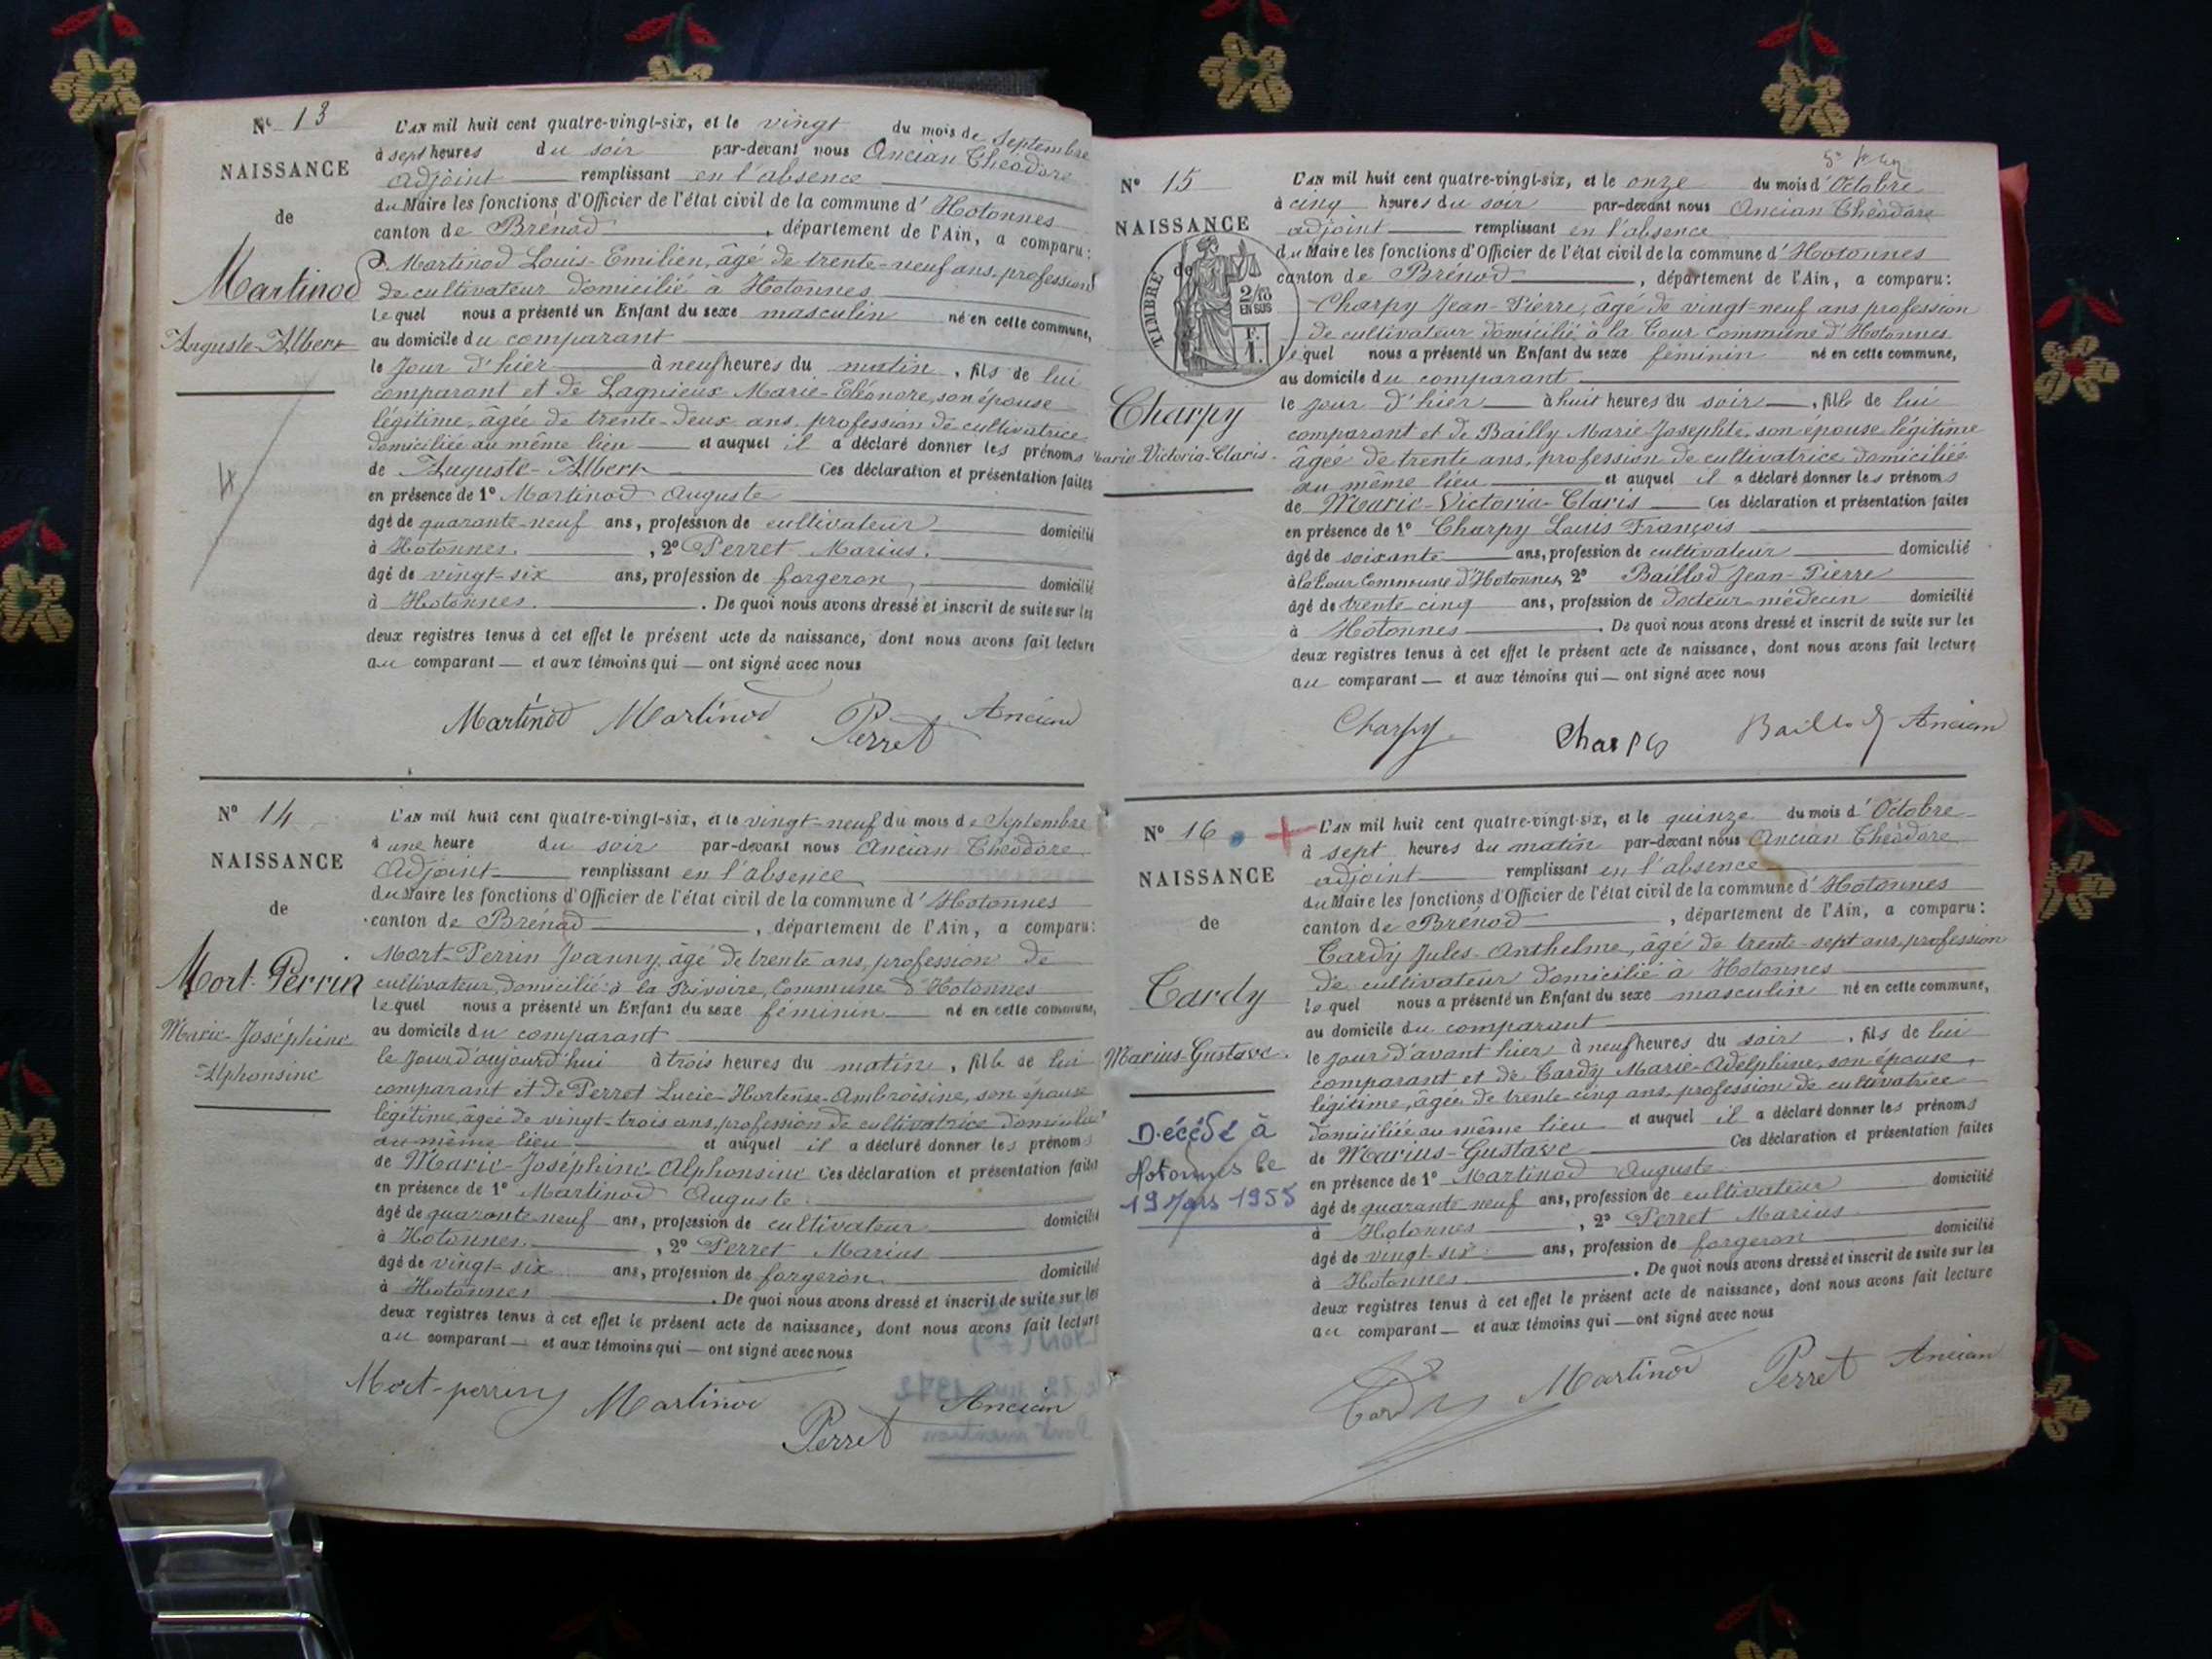 N° 13
NAISSANCE
de
Martinod
Auguste-Albert
L'AN mil huit cent quatre-vingt-six, et le vingt du mois de Septembre
à sept heures du soir par-devant nous Ancian Théodore
Adjoint remplissant en l'absence
du Maire les fonctions d'Officier de l'état civil de la commune d'Hotonnes
canton de Brénod, département de l'Ain, a comparu:
Martinod Louis-Emilien, âgé de trente-neuf ans, profession
de cultivateur domicilié à Hotonnes
lequel nous a présenté un Enfant du sexe masculin né en cette commune,
au domicile du comparant
le jour d'hier à neuf heures du matin, fils de lui
comparant et de Lagnieux Marie-Eléonore, son épouse
légitime, âgée de trente-deux ans, profession de cultivatrice
domiciliée au même lieu et auquel il a déclaré donner les prénoms
de Auguste-Albert Ces déclaration et présentation faites
en présence de 1° Martinod Auguste
âgé de quarante-neuf ans, profession de cultivateur domicilié
à Hotonnes, 2° Perret Marius.
âgé de vingt-six ans, profession de forgeron, domicilié
à Hotonnes. De quoi nous avons dressé et inscrit de suite sur les
deux registres tenus à cet effet le présent acte de naissance, dont nous avons fait lecture
au comparant — et aux témoins qui — ont signé avec nous
Martinod Martinod Perret Ancian
N° 14
NAISSANCE
de
Mort-Perrin
Marie-Joséphine
Alphonsine
L'AN mil huit cent quatre-vingt-six, et le vingt-neuf du mois de Septembre
à une heure du soir par-devant nous Ancian Théodore
Adjoint remplissant en l'absence
du Maire les fonctions d'Officier de l'état civil de la commune d'Hotonnes
canton de Brénod, département de l'Ain, a comparu:
Mort-Perrin Joanny, âgé de trente ans, profession de
cultivateur, domicilié à la Rivoire, Commune d'Hotonnes
lequel nous a présenté un Enfant du sexe féminin né en cette commune,
au domicile du comparant
le jour d'aujourd'hui à trois heures du matin, fille de lui
comparant et de Perret Lucie-Hortense-Ambroisine, son épouse
légitime, âgée de vingt-trois ans, profession de cultivatrice domiciliée
au même lieu et auquel il a déclaré donner les prénoms
de Marie-Joséphine-Alphonsine Ces déclaration et présentation faites
en présence de 1° Martinod Auguste
âgé de quarante-neuf ans, profession de cultivateur domicilié
à Hotonnes, 2° Perret Marius
âgé de vingt-six ans, profession de forgeron domicilié
à Hotonnes. De quoi nous avons dressé et inscrit de suite sur les
deux registres tenus à cet effet le présent acte de naissance, dont nous avons fait lecture
au comparant — et aux témoins qui — ont signé avec nous
Mort-perrin Martinod Perret Ancian
N° 15
NAISSANCE
de
TIMBRE
2/10
EN SUS
F.
1.
Charpy
Marie-Victoria-Claris.
L'AN mil huit cent quatre-vingt-six, et le onze du mois d'Octobre
à cinq heures du soir par-devant nous Ancian Théodore
adjoint remplissant en l'absence
du Maire les fonctions d'Officier de l'état civil de la commune d'Hotonnes
canton de Brénod, département de l'Ain, a comparu:
Charpy Jean-Pierre, âgé de vingt-neuf ans profession
de cultivateur domicilié à la Cour Commune d'Hotonnes
lequel nous a présenté un Enfant du sexe féminin né en cette commune,
au domicile du comparant
le jour d'hier à huit heures du soir, fille de lui
comparant et de Bailly Marie-Josephte, son épouse légitime
âgée de trente ans, profession de cultivatrice domiciliée
au même lieu et auquel il a déclaré donner les prénoms
de Marie-Victoria-Claris Ces déclaration et présentation faites
en présence de 1° Charpy Louis François
âgé de soixante ans, profession de cultivateur domicilié
à la Cour Commune d'Hotonnes, 2° Baillod Jean-Pierre
âgé de trente cinq ans, profession de docteur-médecin domicilié
à Hotonnes. De quoi nous avons dressé et inscrit de suite sur les
deux registres tenus à cet effet le présent acte de naissance, dont nous avons fait lecture
au comparant — et aux témoins qui — ont signé avec nous
Charpy Charpy Baillod Ancian
N° 16
NAISSANCE
de
Tardy
Marius-Gustave.
Décédé à
Hotonnes le
19 Mars 1955
L'AN mil huit cent quatre-vingt-six, et le quinze du mois d'Octobre
à sept heures du matin par-devant nous Ancian Théodore
adjoint remplissant en l'absence
du Maire les fonctions d'Officier de l'état civil de la commune d'Hotonnes
canton de Brénod, département de l'Ain, a comparu:
Tardy Jules-Anthelme, âgé de trente-sept ans, profession
de cultivateur domicilié à Hotonnes
lequel nous a présenté un Enfant du sexe masculin né en cette commune,
au domicile du comparant
le jour d'avant hier à neuf heures du soir, fils de lui
comparant et de Tardy Marie-Adelphine, son épouse
légitime, âgée de trente-cinq ans, profession de cultivatrice
domiciliée au même lieu et auquel il a déclaré donner les prénoms
de Marius-Gustave Ces déclaration et présentation faites
en présence de 1° Martinod Auguste
âgé de quarante neuf ans, profession de cultivateur domicilié
à Hotonnes, 2° Perret Marius
âgé de vingt-six ans, profession de forgeron domicilié
à Hotonnes. De quoi nous avons dressé et inscrit de suite sur les
deux registres tenus à cet effet le présent acte de naissance, dont nous avons fait lecture
au comparant — et aux témoins qui — ont signé avec nous
Tardy Martinod Perret Ancian